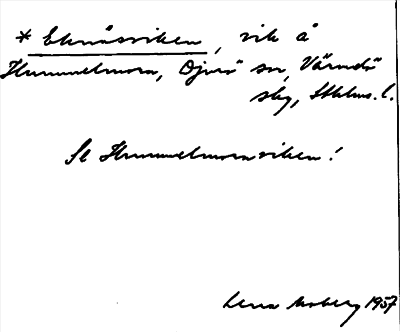 * Eknäsviken, vik å
Hummelmora, Djurö sn, Värmdö
skg, Sthlms. l.
Se Hummelmoraviken!
Lena Moberg 1957